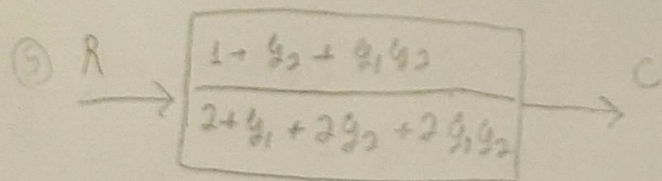 ⑤ R 1 + g₂ + g₁g₂ C
2 + g₁ + 2g₂ + 2g₁g₂